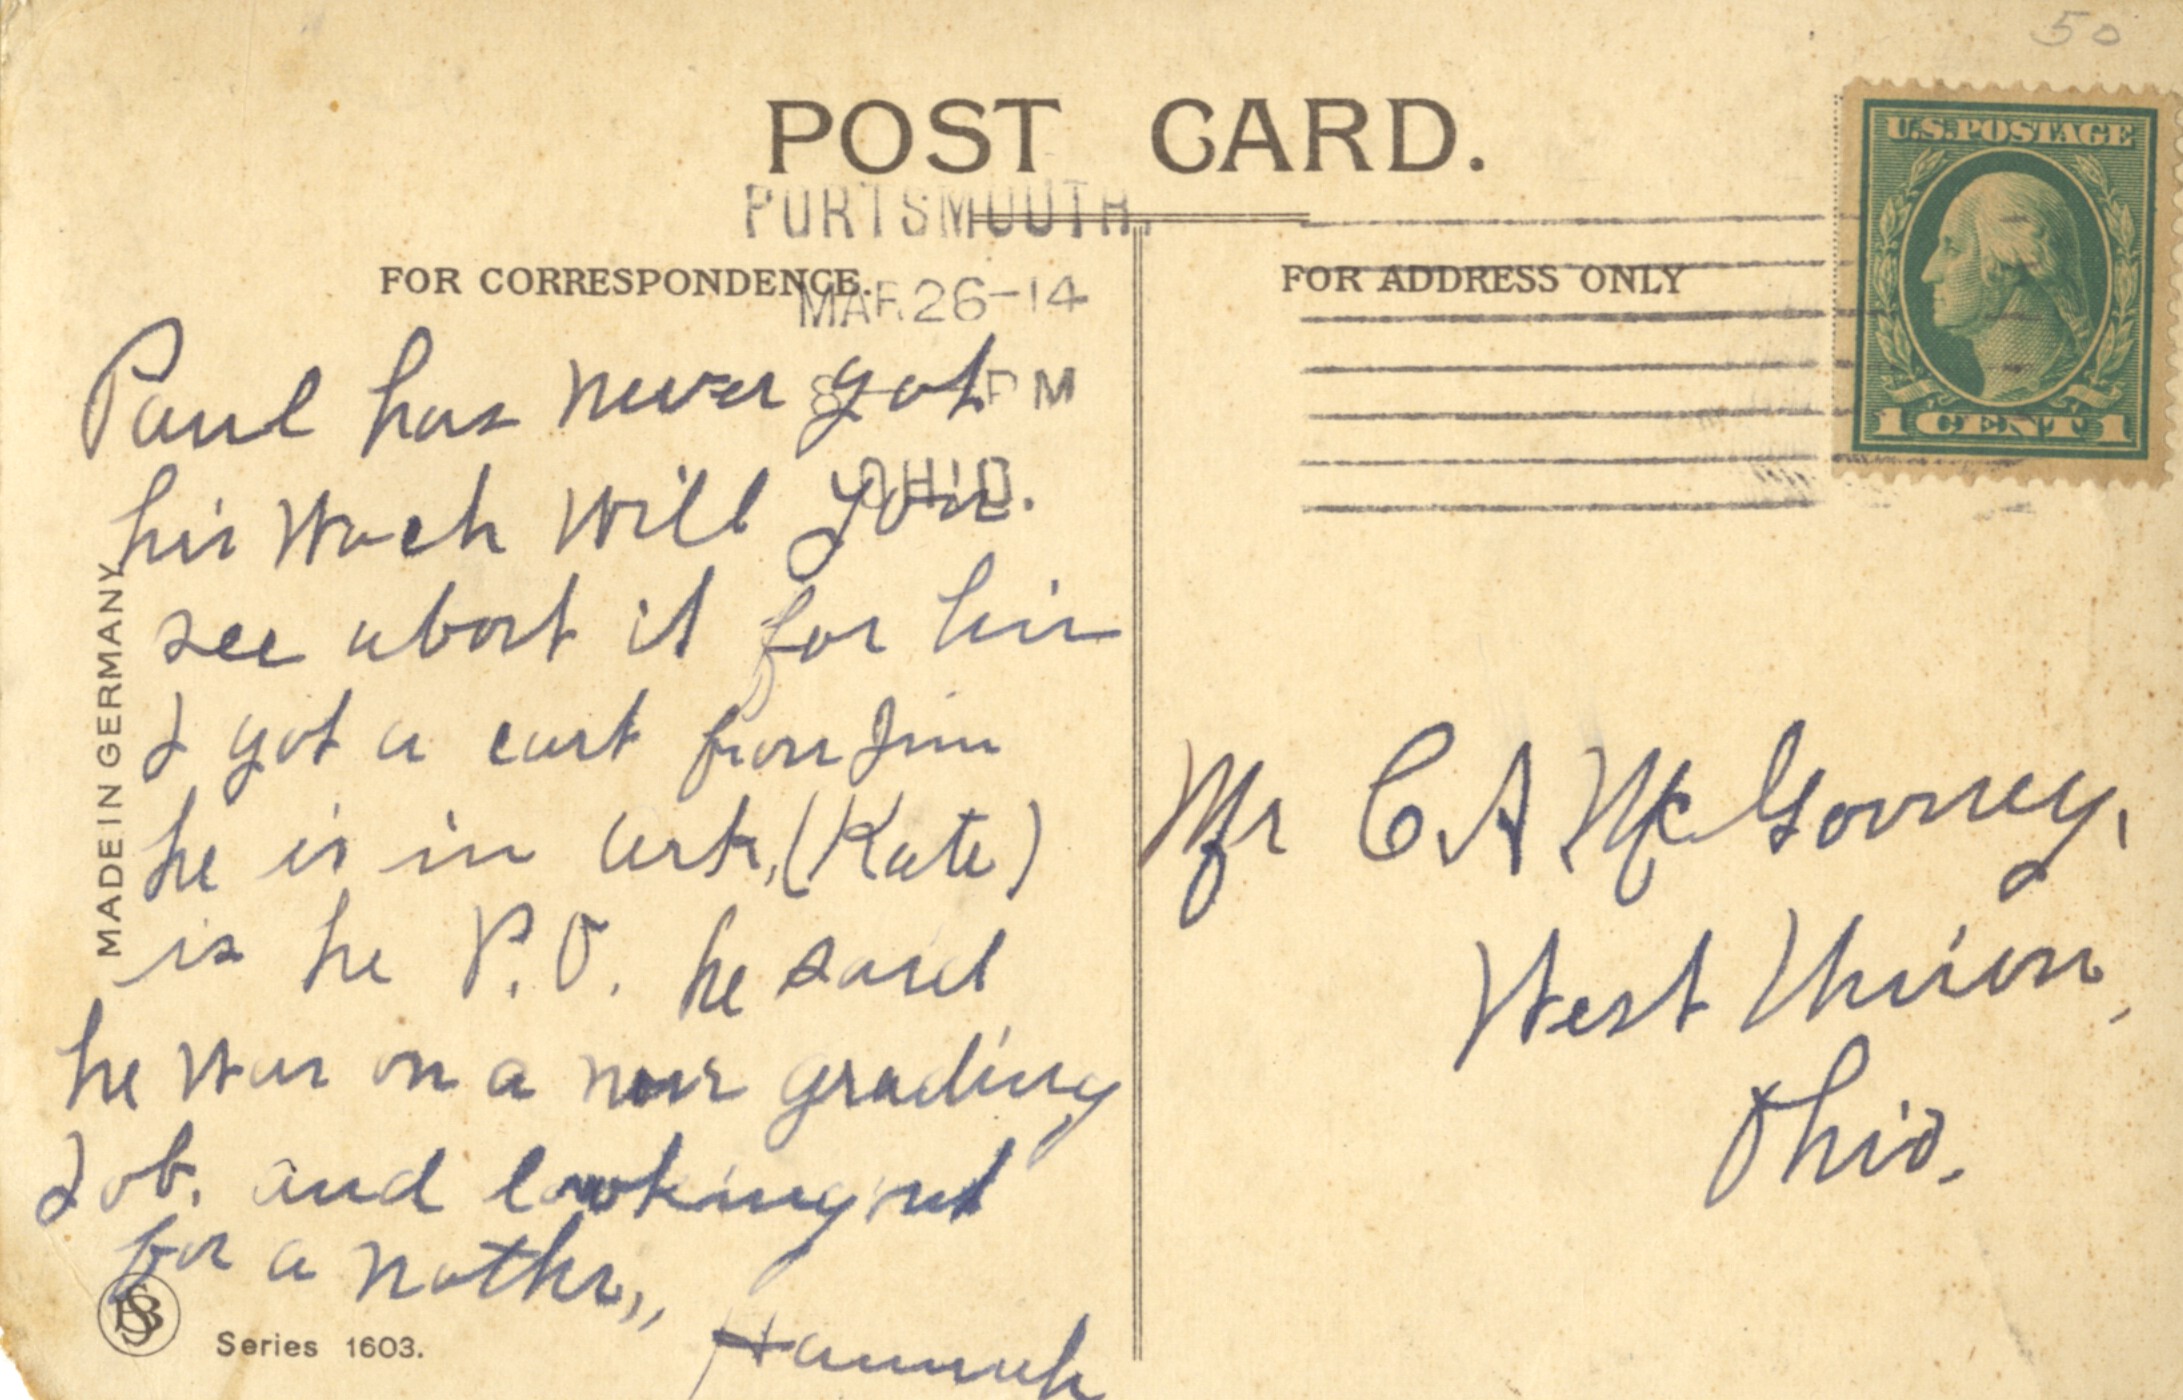 50
POST CARD.
PORTSMOUTH,
MAR 26-14
8 PM
OHIO.
U.S. POSTAGE
1 CENT 1
FOR CORRESPONDENCE.
FOR ADDRESS ONLY
Paul has never got
his wach will you
see about it for him
I got a cart from Jim
he is in Ark, (Kate)
is he P.O. he said
he was on a new grading
Job. and looking out
for a nother,,
Hannah
MADE IN GERMANY
BS
Series 1603.
Mr C. A McGovney,
West Union,
Ohio.